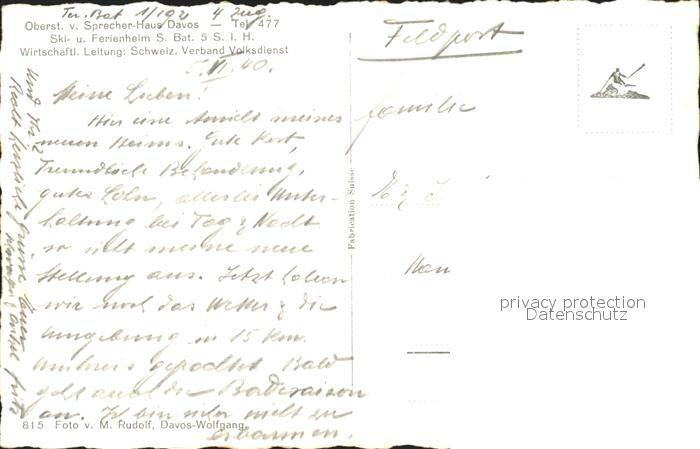 Ter. Bat 1/191 4 Zug.
Oberst. v. Sprecher-Haus Davos — Tel. 477
Ski- u. Ferienheim S. Bat. 5 S. I. H.
Wirtschaftl. Leitung: Schweiz. Verband Volksdienst
5. VI. 40.
Meine Lieben!
Hier eine Ansicht meines
neuen Heims. Gute Kost,
freundliche Behandlung,
guter Lohn, allerlei Unter-
haltung bei Tag & Nacht
so sieht meine neue
Stellung aus. Jetzt haben
wir noch das Wetter & die
Umgebung in 15 Km.
Umkreis gepachtet. Bald
geht auch die Badesaison
an. Ich bin sicher nicht zu
erbarmen.
Und
Recht herzliche Grüsse Euer
Fritz
815 Foto v. M. Rudolf, Davos-Wolfgang
Fabrication Suisse
Feldpost
Familie
privacy protection
Datenschutz